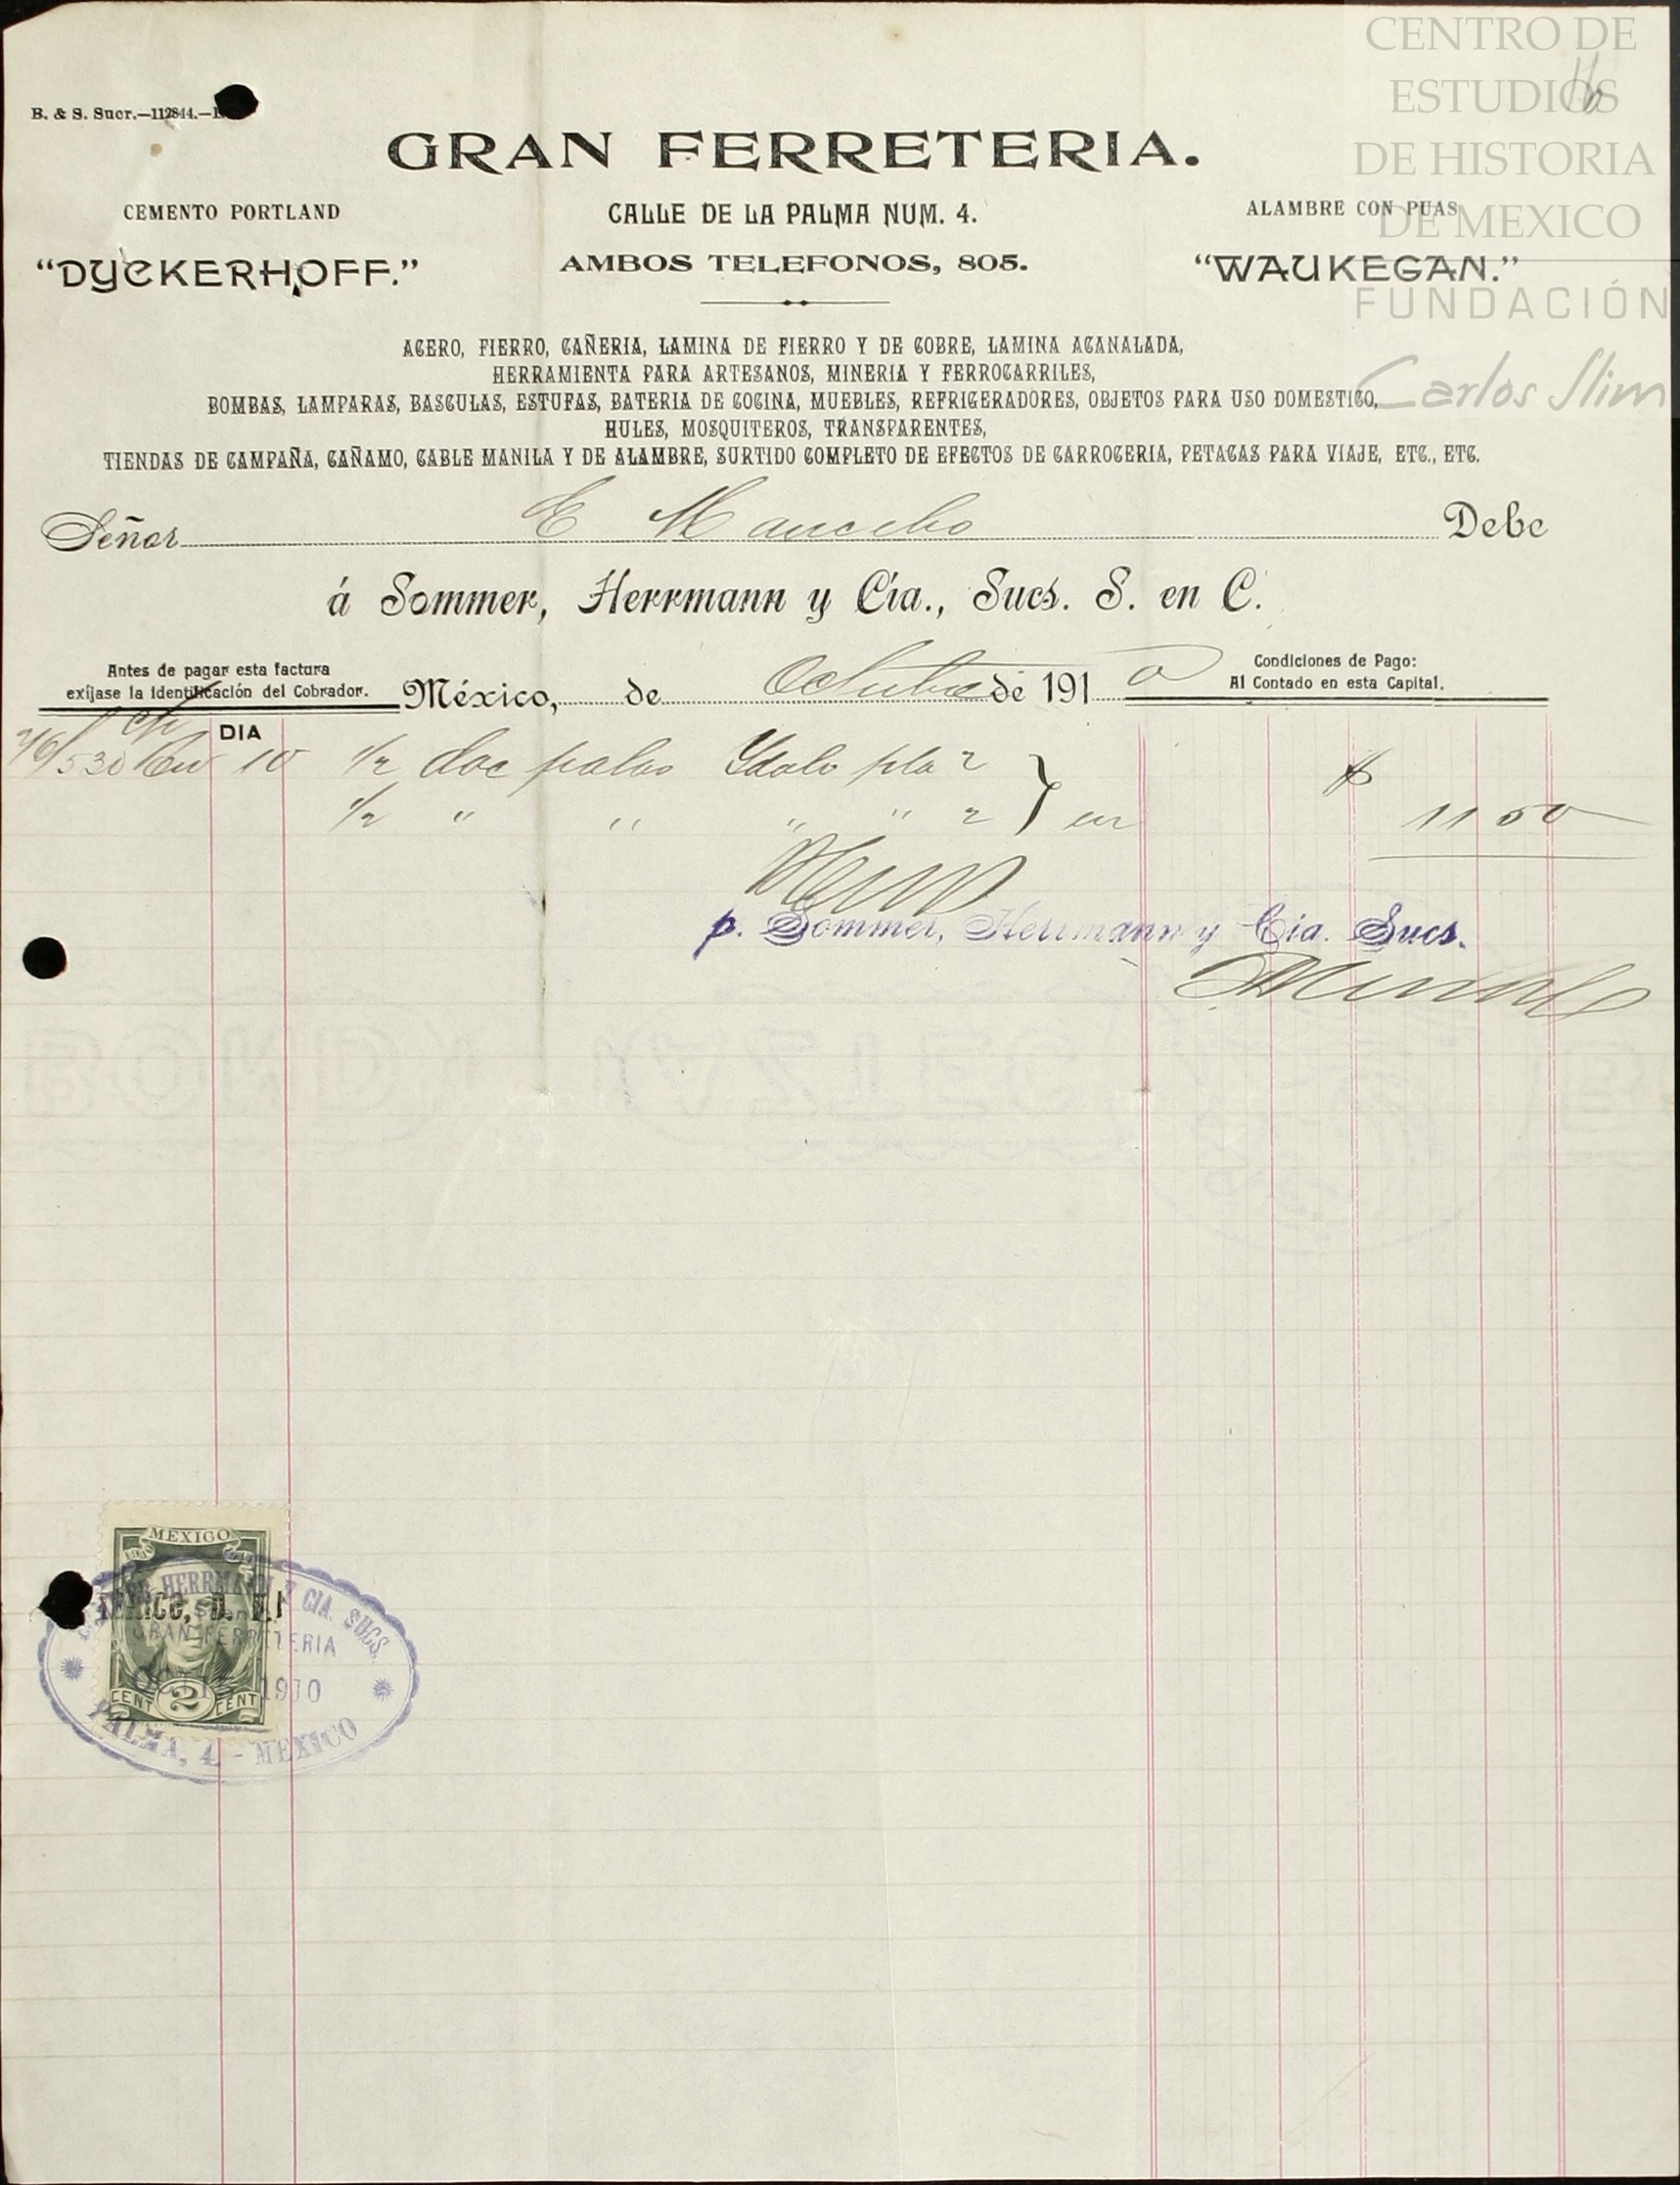 CENTRO DE
ESTUDIOS
DE HISTORIA
DE MEXICO
FUNDACIÓN
Carlos Slim
B. & S. Sucr.—112844.—
GRAN FERRETERIA.
CEMENTO PORTLAND
"DYCKERHOFF."
CALLE DE LA PALMA NUM. 4.
AMBOS TELEFONOS, 805.
ALAMBRE CON PUAS
"WAUKEGAN."
ACERO, FIERRO, CAÑERIA, LAMINA DE FIERRO Y DE COBRE, LAMINA ACANALADA,
HERRAMIENTA PARA ARTESANOS, MINERIA Y FERROCARRILES,
BOMBAS, LAMPARAS, BASCULAS, ESTUFAS, BATERIA DE COCINA, MUEBLES, REFRIGERADORES, OBJETOS PARA USO DOMESTICO,
HULES, MOSQUITEROS, TRANSPARENTES,
TIENDAS DE CAMPAÑA, CAÑAMO, CABLE MANILA Y DE ALAMBRE, SURTIDO COMPLETO DE EFECTOS DE CARROCERIA, PETACAS PARA VIAJE, ETC., ETC.
Señor E Mancebo Debe
á Sommer, Herrmann y Cía., Sucs. S. en C.
Antes de pagar esta factura
exíjase la identificación del Cobrador.
México, de Octubre de 1910
Condiciones de Pago:
Al Contado en esta Capital.
DIA
10 1/2 doc palas Ydolo pla 2 $
1/2 " " " " 2 } 11 50
p. Sommer, Herrmann y Cia. Sucs.
MEXICO
HERRMANN Y CIA. SUCS.
MEXICO, D. F.
GRAN FERRETERIA
1910
CENT 2 CENT
PALMA, 4. - MEXICO